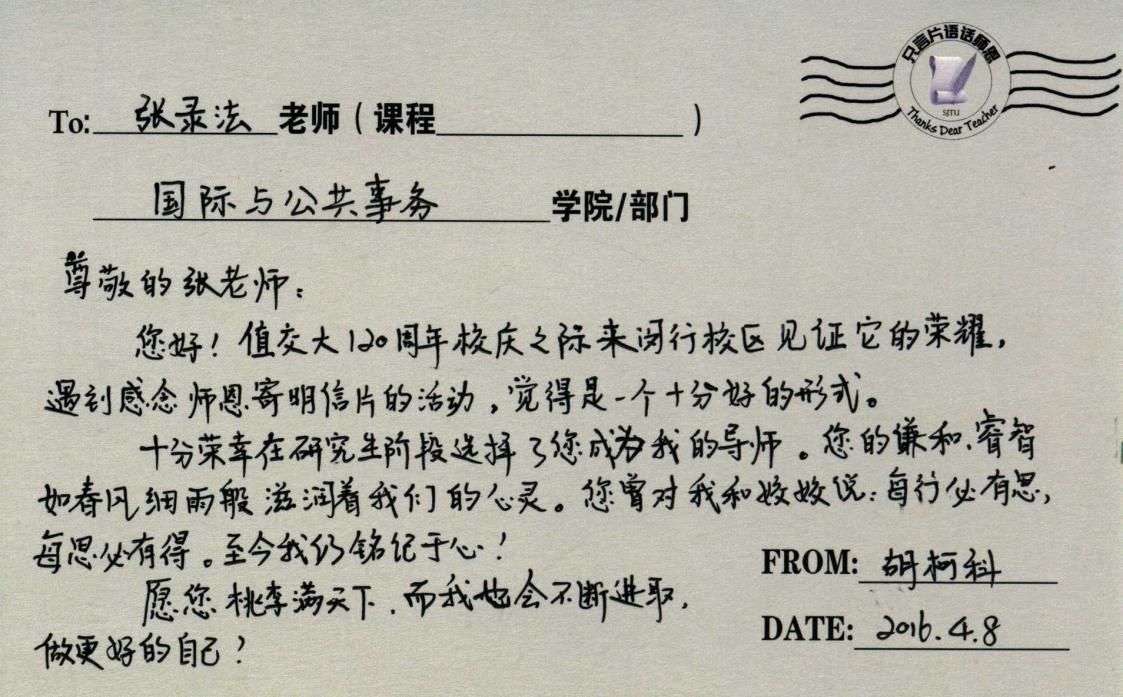 只言片语话师恩
SJTU
Thanks Dear Teacher
To: 张录法 老师（课程 ）
国际与公共事务 学院/部门
尊敬的张老师：
您好！值交大120周年校庆之际来闵行校区见证它的荣耀，
遇到感念师恩寄明信片的活动，觉得是一个十分好的形式。
十分荣幸在研究生阶段选择了您成为我的导师。您的谦和、睿智
如春风细雨般滋润着我们的心灵。您曾对我和姣姣说：每行必有思，
每思必有得。至今我仍铭记于心！
愿您桃李满天下，而我也会不断进取，
做更好的自己！
FROM: 胡柯科
DATE: 2016.4.8